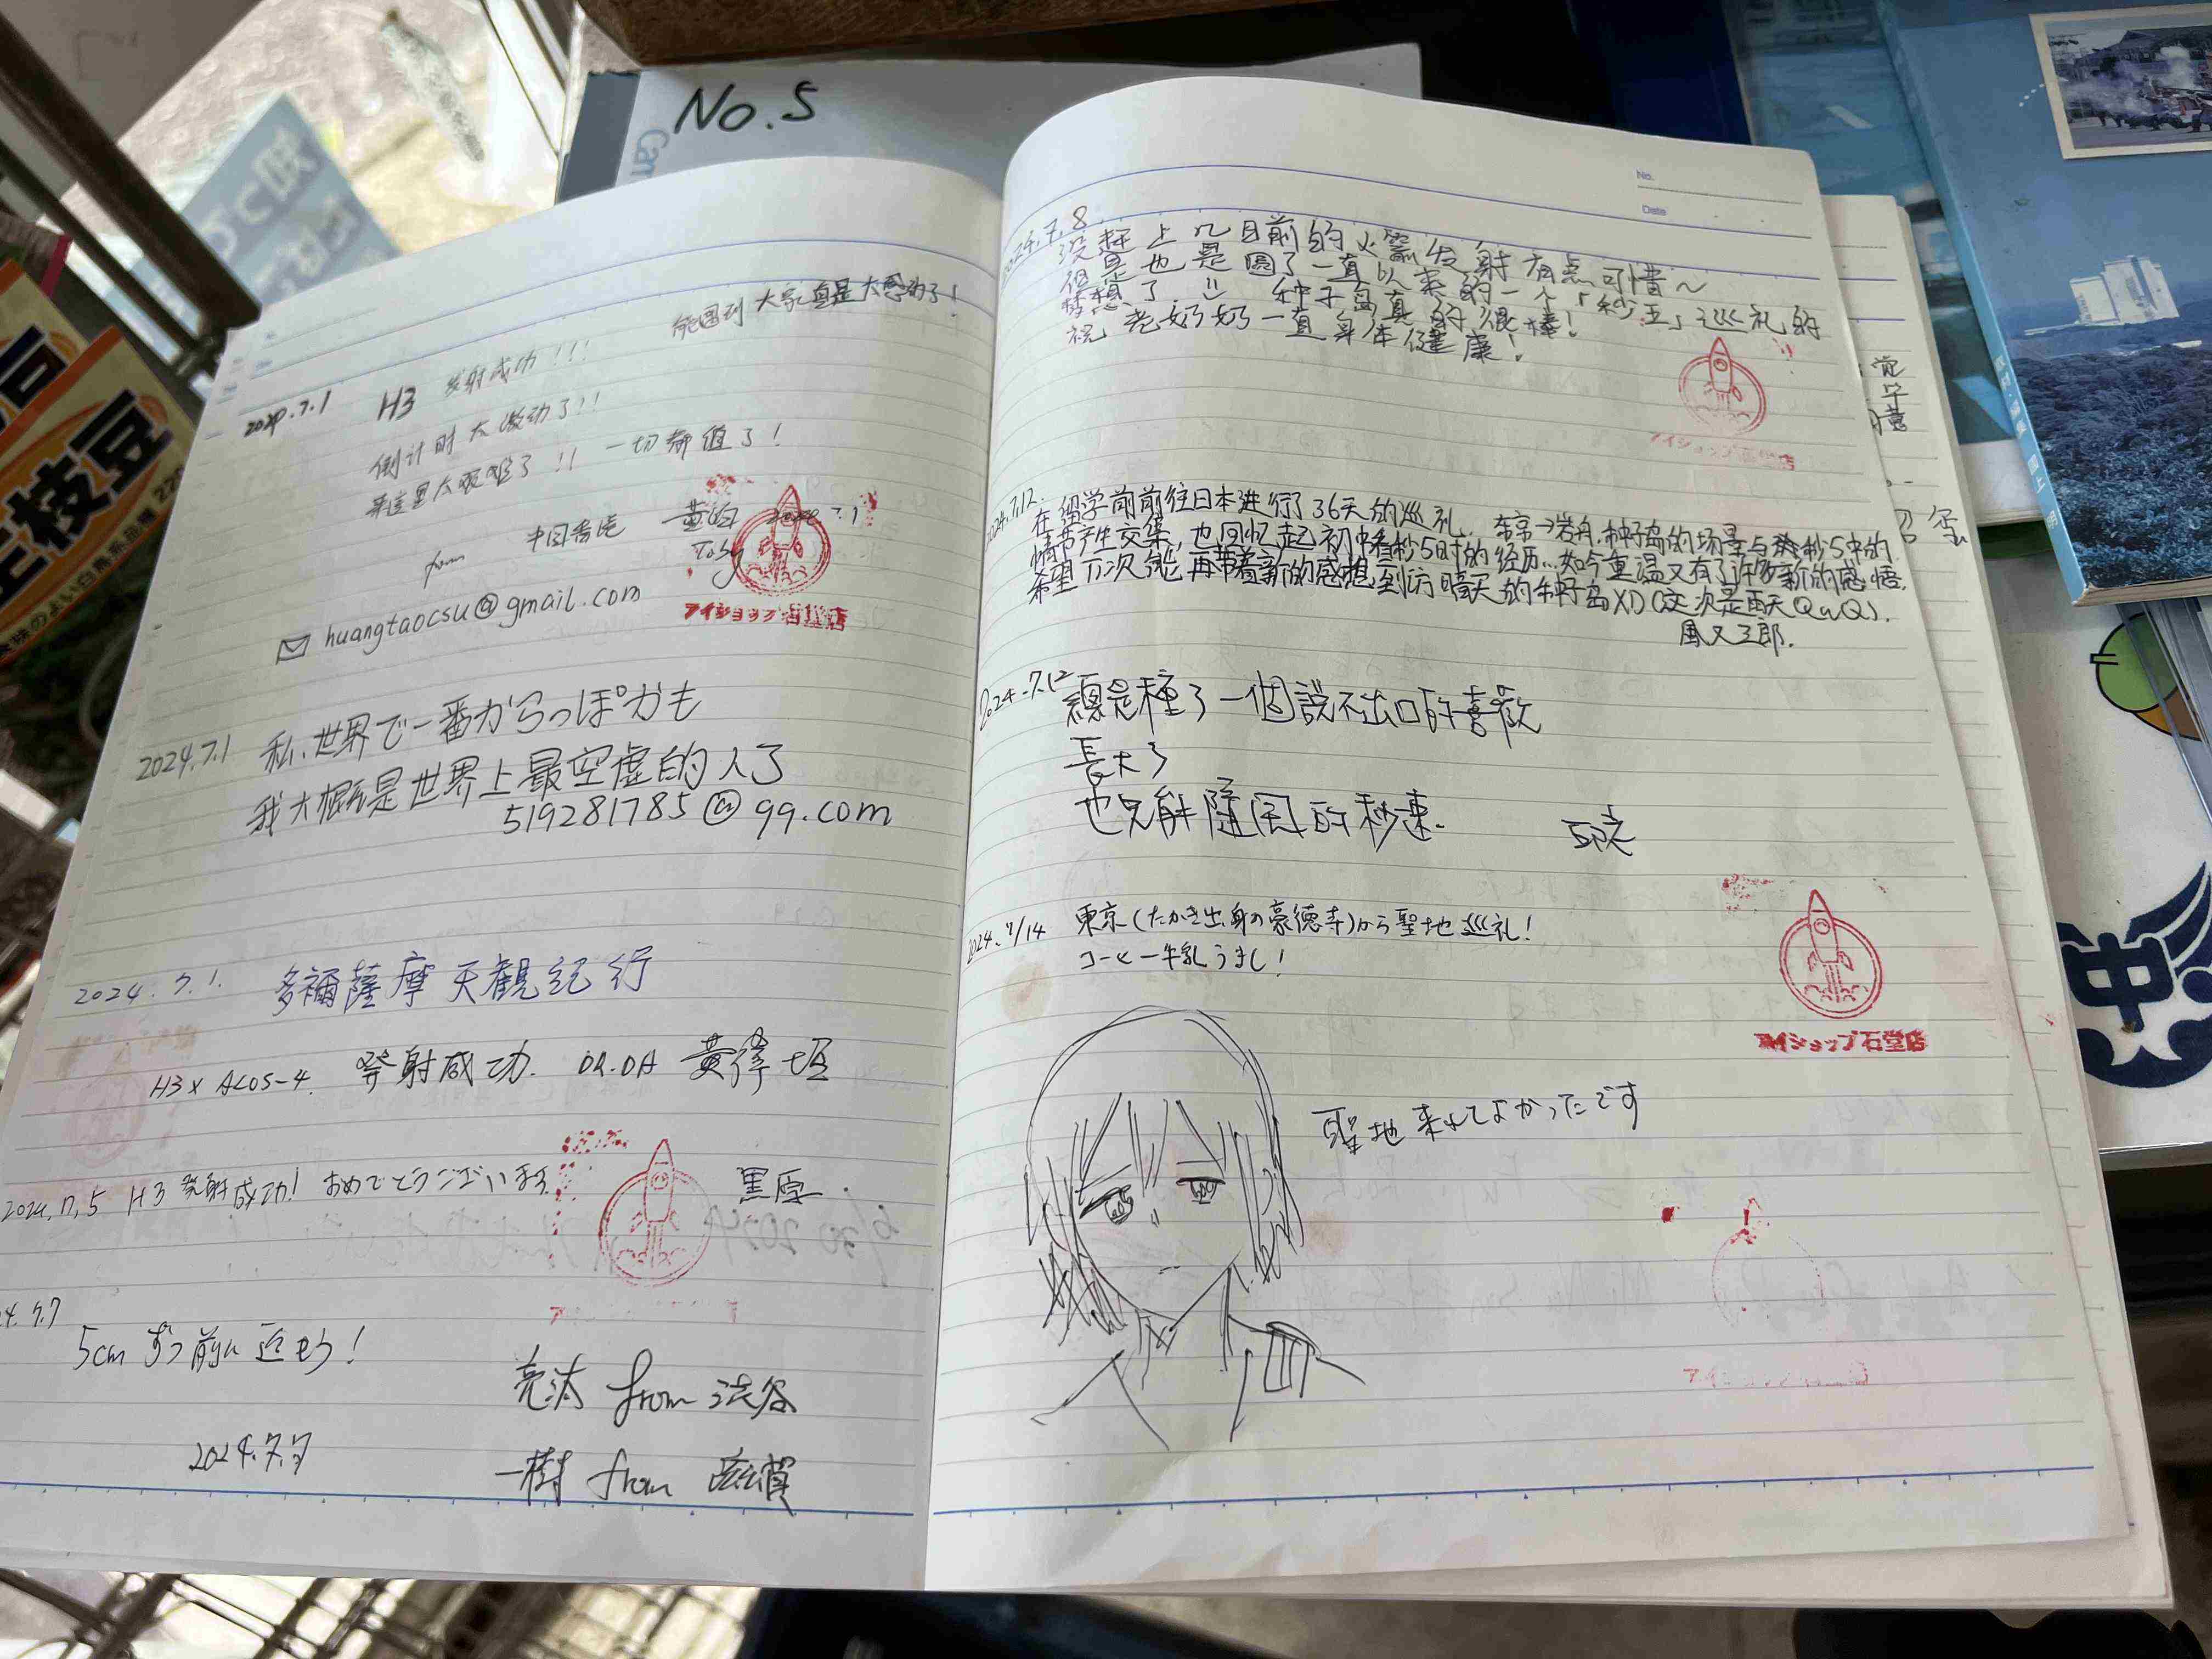 No.5
能遇到大家真是太感动了!
2024.7.1 H3 发射成功!!!
倒计时太激动了!!
来这里太艰难了!! 一切都值了!
from 中国香港 黄 Toby
huangtaocsu@gmail.com
アイショップ石堂店
2024.7.1 私、世界で一番からっぽかも
我大概是世界上最空虚的人了
519281785@qq.com
2024.7.1. 多禰薩摩天観紀行
H3×ALOS-4 発射成功. 黄
2024.7.5 H3 発射成功! おめでとうございます. 黒原.
24.7.7
5cmずつ前に近もう!
亮汰 from 渋谷
2024.7.7
一樹 from 滋賀
No.
Date
2024.7.8
没赶上几日前的火箭发射有点可惜~
但是也是圆了一直以来的一个「秒五」巡礼的
梦想了 种子岛真的很棒!
祝老奶奶一直身体健康!
アイショップ石堂店
2024.7.12.
在留学前前往日本进行了36天的巡礼, 东京→岩舟,种子岛的场景与秒5中的
情节产生交集,也回忆起初中看秒5时的经历...如今重温又有了许多新的感悟.
希望下次能再带着新的感想到访晴天的种子岛XD(这次是雨天QuQ).
風又三郎.
2024.7.12
總是種了一個說不出口的喜歡
長大了
也只能隨風的秒速.
2024.7/14 東京(たかき出身の豪徳寺)から聖地巡礼!
コーヒー牛乳うまし!
アイショップ石堂店
聖地来れてよかったです
枝豆
中